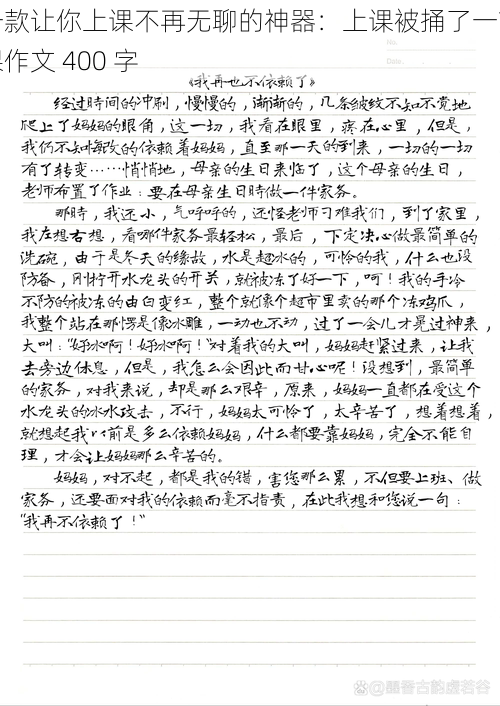 款让你上课不再无聊的神器：上课被捅了一
作文 400 字
No.
Date.
《我再也不依赖了》
经过时间的冲刷，慢慢的，渐渐的，几条皱纹不知不觉地
爬上了妈妈的眼角，这一切，我看在眼里，疼在心里，但是，
我仍不知悔改的依赖着妈妈，直至那一天的到来，一切的一切
有了转变……悄悄地，母亲的生日来临了，这个母亲的生日，
老师布置了作业：要在母亲生日时做一件家务。
那时，我还小，气呼呼的，还怪老师刁难我们，到了家里，
我左想右想，看哪件家务最轻松，最后，下定决心做最简单的
洗碗，由于是冬天的缘故，水是超冰的，可怜的我，什么也没
防备，刚拧开水龙头的开关，就被冻了好一下，呵！我的手冷
不防的被冻的由白变红，整个就像个超市里卖的那个冻鸡爪，
我整个站在那愣是像冰雕，一动也不动，过了一会儿才晃过神来，
大叫：“好冰啊！好冰啊！”对着我的大叫，妈妈赶紧过来，让我
去旁边休息，但是，我怎么会因此而甘心呢！没想到，最简单
的家务，对我来说，却是那么艰辛，原来，妈妈一直都在受这个
水龙头的冰水攻击，不行，妈妈太可怜了，太辛苦了，想着想着，
就想起我以前是多么依赖妈妈，什么都要靠妈妈，完全不能自
理，才会让妈妈那么辛苦的。
妈妈，对不起，都是我的错，害您那么累，不但要上班、做
家务，还要面对我的依赖而毫不指责，在此我想和您说一句：
“我再不依赖了！”